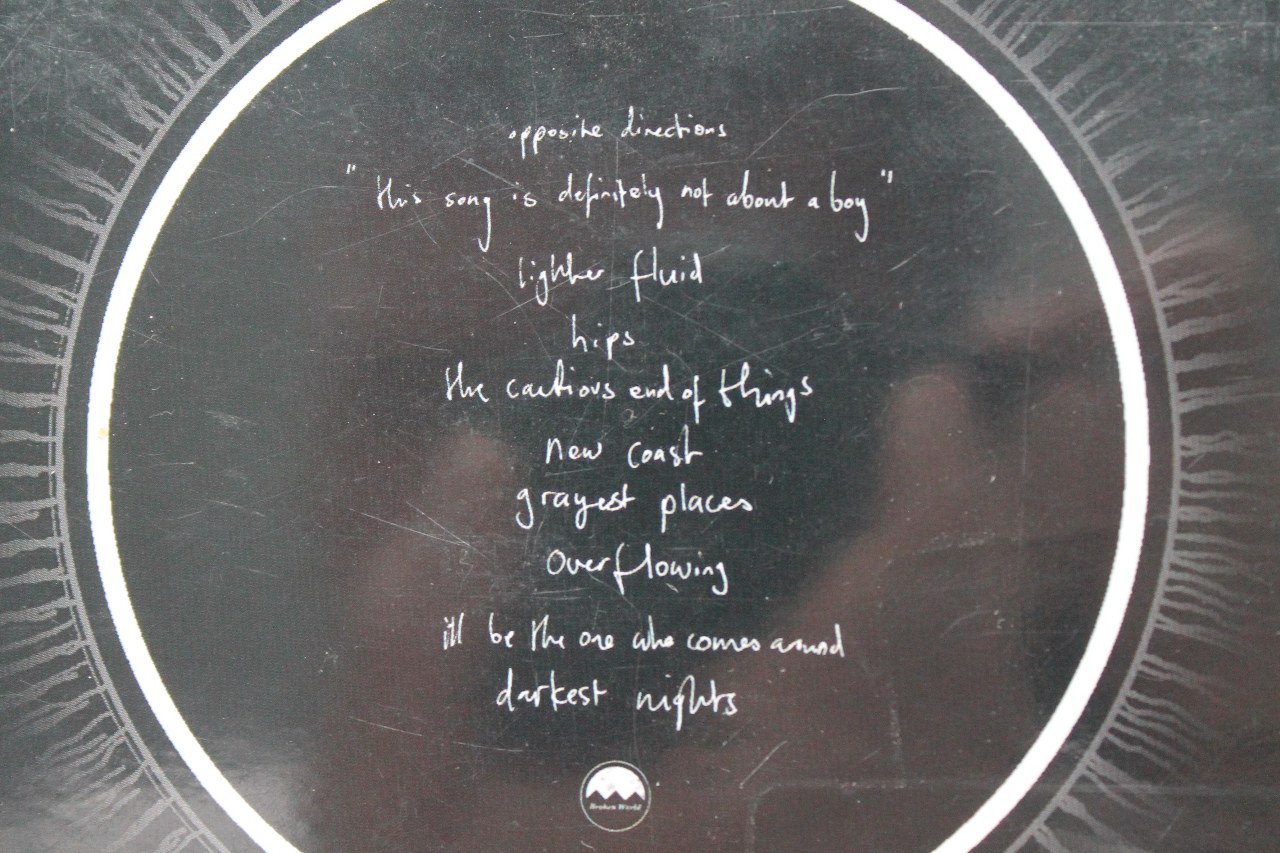 opposite directions
"this song is definitely not about a boy"
lighter fluid
hips
the cautious end of things
new coast
grayest places
overflowing
ill be the one who comes around
darkest nights
Broken World